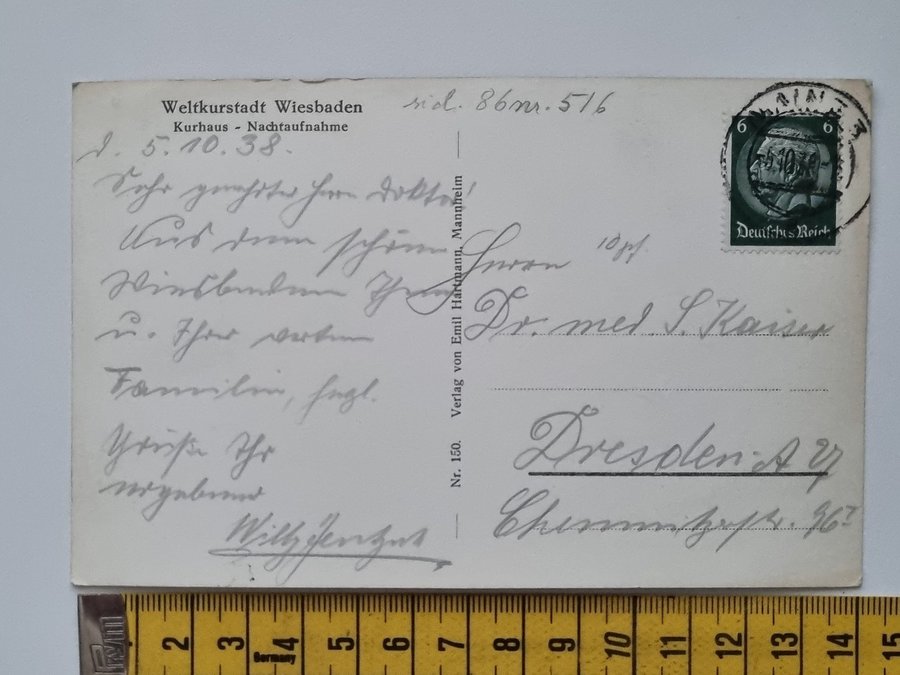 Weltkurstadt Wiesbaden
Kurhaus - Nachtaufnahme
86 nr. 516
d. 5.10.38.
Sehr geehrter Herr Doktor!
Aus dem schönen
Wiesbaden Ihnen
u. Ihrer werten
Familie, herzl.
Grüße Ihr
ergebener
Willy
Nr. 150. Verlag von Emil Hartmann, Mannheim
6 6
Deutsches Reich
Herrn
Dr. med. S. Kaiser
Dresden-A 27
Chemnitzerstr. 96
2 3 4 5 6 7 8 9 10 11 12 13 14 15
Germany